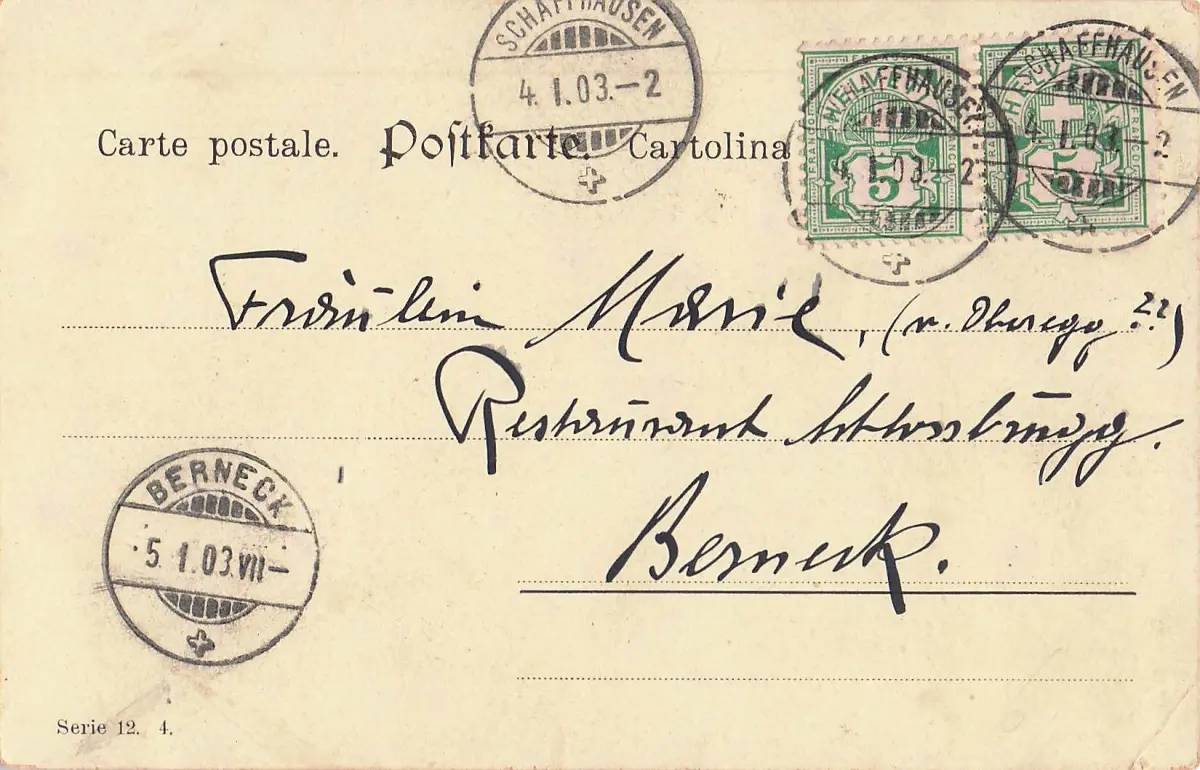 SCHAFFHAUSEN
4. I. 03.–2
SCHAFFHAUSEN
4. I. 03.–2
SCHAFFHAUSEN
4. I. 03.–2
5
5
Carte postale. Poſtkarte. Cartolina
Fräulein Marie, (v. Oberegg ??)
Restaurant Schlossbrugg.
Berneck.
BERNECK
5. 1. 03. VII–
Serie 12. 4.